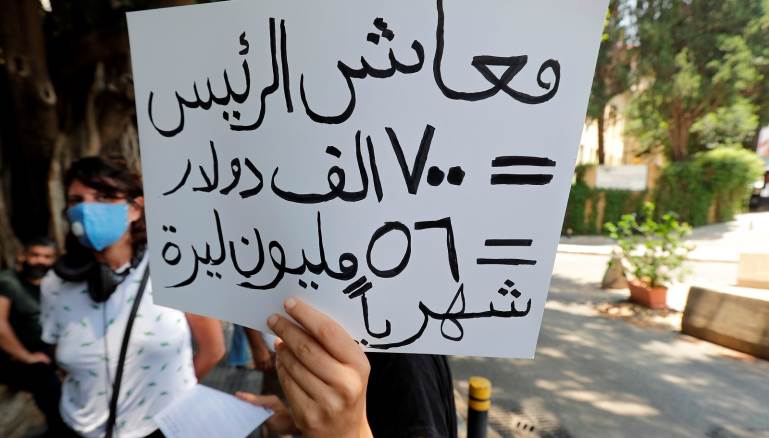 معاش الرئيس
= ٧٠٠ الف دولار
= ٥٦ مليون ليرة
شهرياً